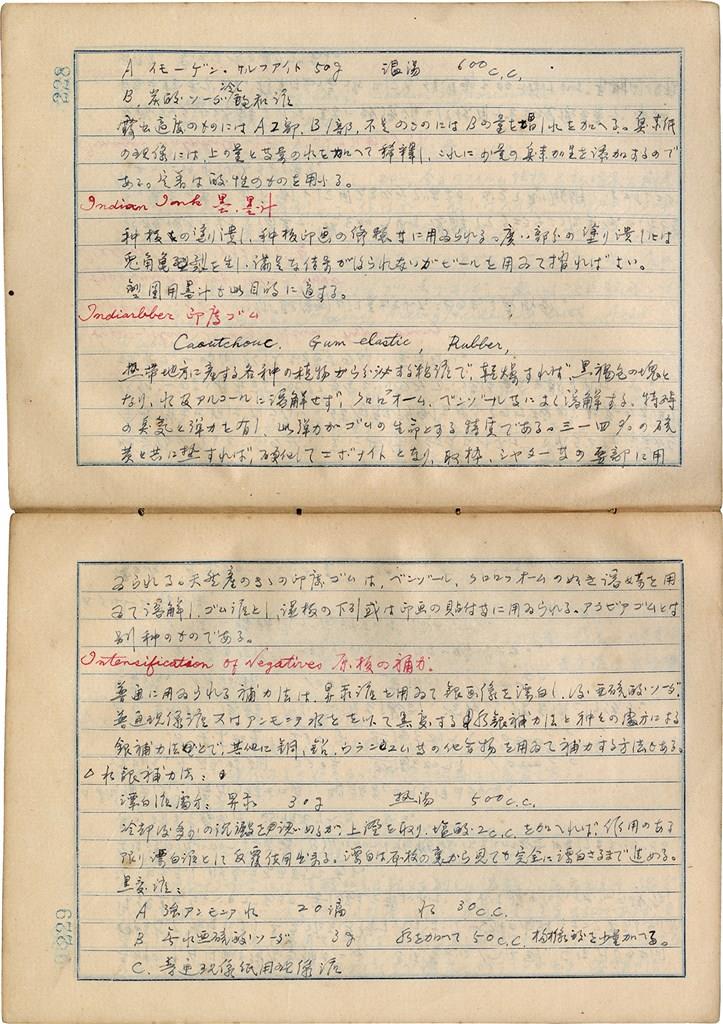 228
A イモーゲン・サルファイト 50g 温湯 600c.c.
B. 炭酸ソーダ冷飽和液
露出適度のものには A 2部、B 1部、不足のものには Bの量を増し水を加へる。臭素紙
の現像には、上の量と等量の水を加へて稀釋し、これに少量の臭素加里を添加するので
ある。定着は酸性のものを用ふる。
Indian Ink 墨、墨汁
種板の塗り潰し、種板印画の修整等に用ゐられる。廣い部分の塗り潰しには
亀裂を生じ、満足な結果が得られないがビールを用ゐて摺ればよい。
製圖用墨汁も此目的に適する。
Indiarbber 印度ゴム
Caoutchouc. Gum elastic, Rubber,
熱帯地方に産する各種の植物から分泌する粘液で、乾燥すれば、黒褐色の塊と
なり、水及アルコールに溶解せず、クロロフオーム、ベンゾール等によく溶解する。特時
の臭気と弾力を有し、此弾力がゴムの生命とする特質である。三一四%の硫
黄と共に熱すれば、硬化してエボナイトとなり、取枠、シヤター等の要部に用
ゐられる。天然産のまゝの印度ゴムは、ベンゾール、クロロフオームの如き溶媒を用
ゐて溶解し、ゴム液とし、湿板の下引或は印画の貼付等に用ゐられる。アラビアゴムとは
別種のものである。
Intensification of Negatives 原板の補力.
普通に用ゐられる補力法は、昇汞液を用ゐて銀画像を漂白し、後亜硫酸ソーダ、
普通現像液又はアンモニア水を以て黒変する水銀補力法と種々の處方による
銀補力法とで、其他に銅、鉛、ウラニユム等の化合物を用ゐて補力する方法がある。
△ 水銀補力法:
漂白液處方: 昇汞 30g 熱湯 500c.c.
冷却後多少の沈澱を認めるが、上澄を取り、塩酸2c.c.を加へれば、作用のある
限り漂白液として反覆使用出来る。漂白は原板の裏から見ても完全に漂白さるまで進める。
黒変液:
A 強アンモニア水 20滴 水 30c.c.
B 無水亜硫酸ソーダ 3g 水を加へて 50c.c. 枸櫞酸を少量加へる。
C. 普通現像紙用現像液
229